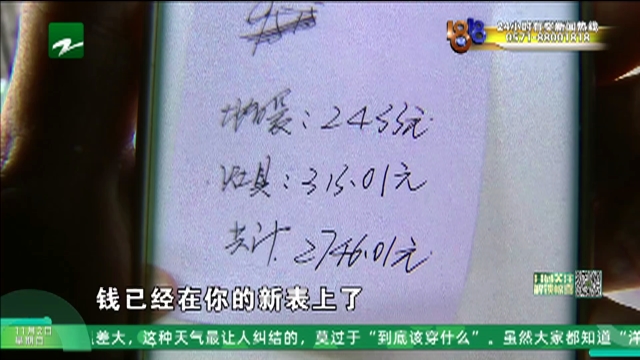 24小时有奖新闻热线
1818
0571-88001818
地暖：2433元
灶具：313.01元
共计 2746.01元
钱已经在你的新表上了
11月2日
星期日
差大，这种天气最让人纠结的，莫过于“到底该穿什么”。虽然大家都知道“洋